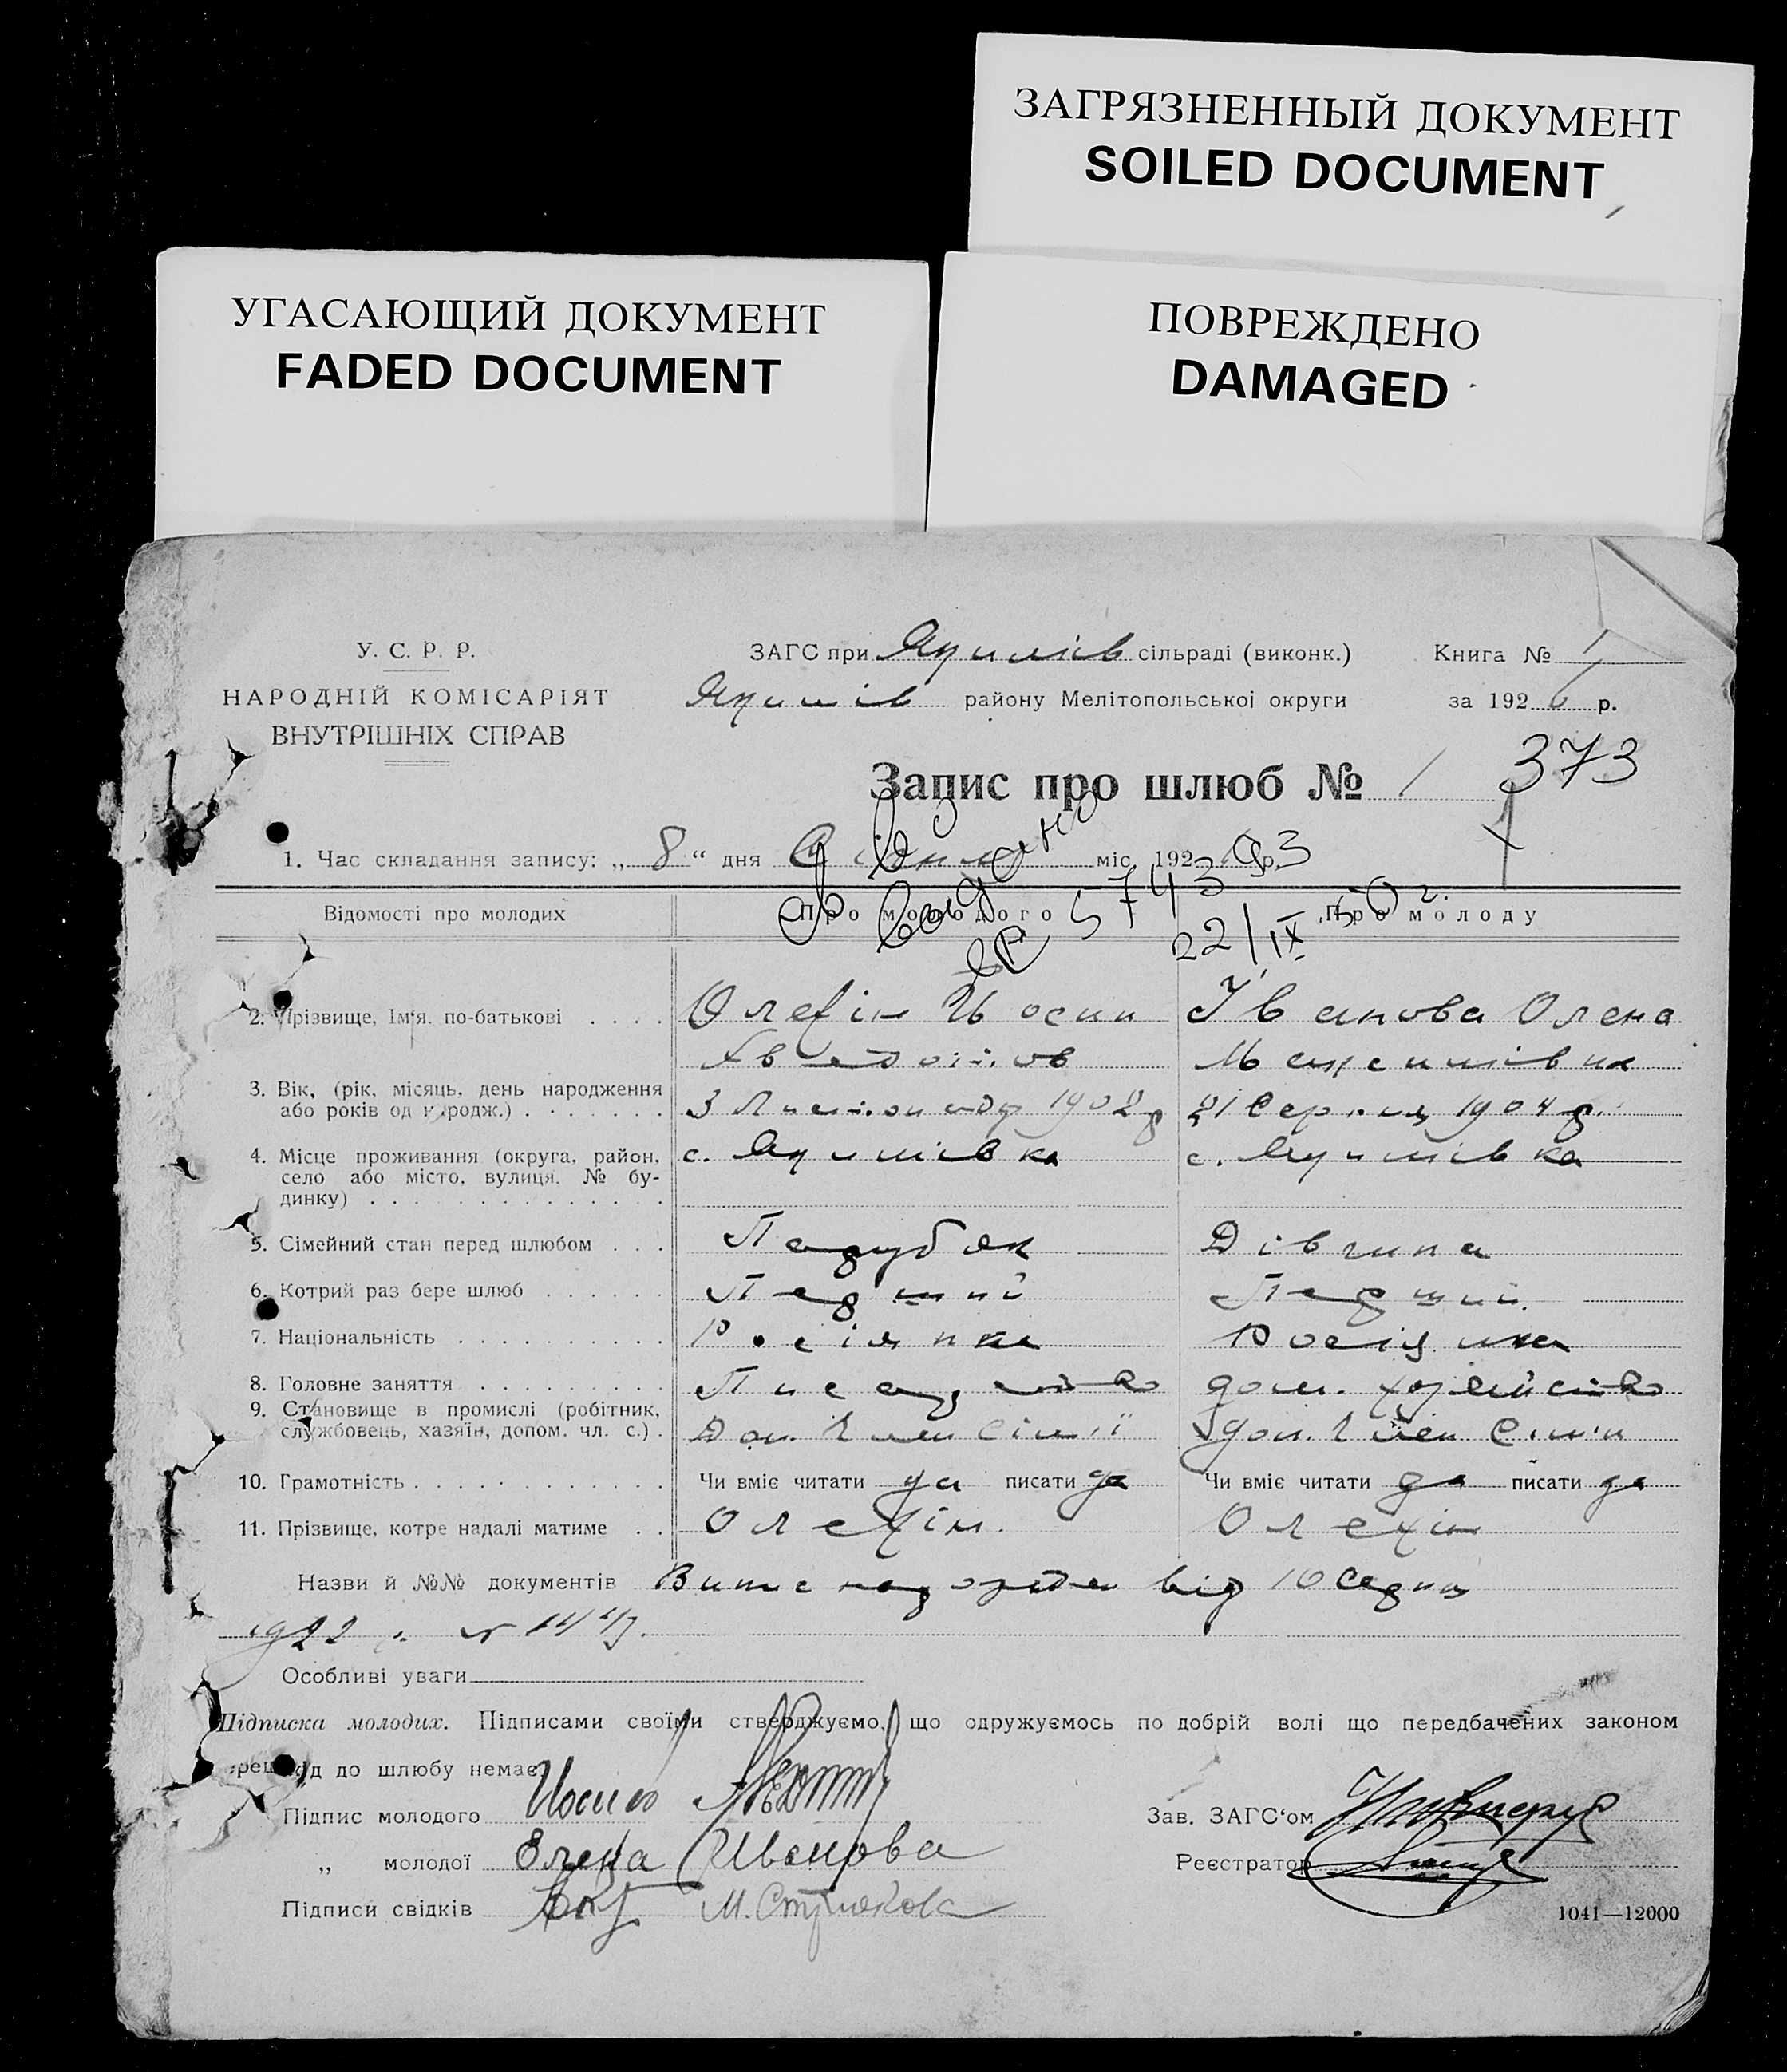 ЗАГРЯЗНЕННЫЙ ДОКУМЕНТ
SOILED DOCUMENT
УГАСАЮЩИЙ ДОКУМЕНТ
FADED DOCUMENT
ПОВРЕЖДЕНО
DAMAGED
У. С. Р. Р.
НАРОДНІЙ КОМІСАРІЯТ
ВНУТРІШНІХ СПРАВ
ЗАГС при Якимів сільраді (виконк.) Книга № 1
Якимів район у Мелітопольської округи за 1926 р.
Запис про шлюб № 1 373
1. Час складання запису: „ 8 “ дня Січня міс. 192 р.
Св-во
выдано
574393
22/IX 50 г.
Відомості про молодих Про молодого Про молоду
2. Прізвище, Імя. по-батькові Олехін Йосип Іванова Олена
Максимівна
3. Вік, (рік, місяць, день народження
або років од народж.) 3 Листопаду 1902 р 21 Серпня 1904 р.
4. Місце проживання (округа, район, с. Якимівка с. Якимівка
село або місто, вулиця. № бу-
динку)
5. Сімейний стан перед шлюбом Парубок Дівчина
6. Котрий раз бере шлюб Перший Перший
7. Національність Росіянка Росіянка
8. Головне заняття дом. хазяйство
9. Становище в промислі (робітник,
службовець, хазяїн, допом. чл. с.) Доп. Член Сімії Доп. Член Сімії
10. Грамотність Чи вміє читати да писати да Чи вміє читати да писати да
11. Прізвище, котре надалі матиме Олехін Олехін
Назви й №№ документів від 10 Серпня
1922 р. №
Особливі уваги
Підписка молодих. Підписами своїми стверджуємо, що одружуємось по добрій волі що передбачених законом
перешкод до шлюбу немає
Підпис молодого Иосиф Зав. ЗАГС‘ом
„ молодої Елена Иванова Реєстратор
Підписи свідків М. Стрюкова
1041—12000